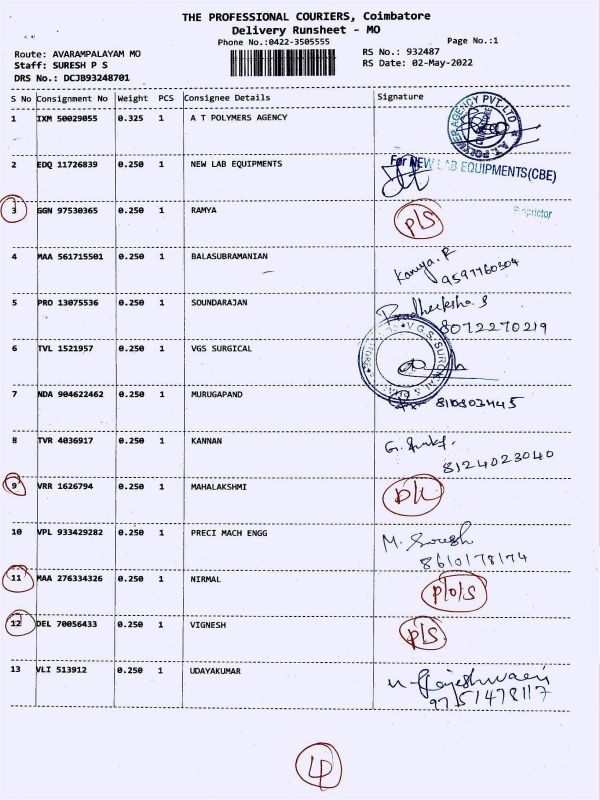 THE PROFESSIONAL COURIERS, Coimbatore
Delivery Runsheet - MO
Phone No.:0422-3505555 Page No.:1
Route: AVARAMPALAYAM MO RS No.: 932487
Staff: SURESH P S RS Date: 02-May-2022
DRS No.: DCJB93248701
S No Consignment No Weight PCS Consignee Details Signature
1 IXM 50029055 0.325 1 A T POLYMERS AGENCY
2 EDQ 11726839 0.250 1 NEW LAB EQUIPMENTS For NEW LAB EQUIPMENTS(CBE)
Proprietor
3 GGN 97530365 0.250 1 RAMYA P/S
4 MAA 561715501 0.250 1 BALASUBRAMANIAN Kaniya. R
9597760304
5 PRO 13075536 0.250 1 SOUNDARAJAN Pradheeksha S
8072270219
6 TVL 1521957 0.250 1 VGS SURGICAL V.G.S. SURGICAL
7 NDA 904622462 0.250 1 MURUGAPAND
8 TVR 4036917 0.250 1 KANNAN
8124023040
9 VRR 1626794 0.250 1 MAHALAKSHMI
10 VPL 933429282 0.250 1 PRECI MACH ENGG M. Suresh
8610178174
11 MAA 276334326 0.250 1 NIRMAL P/o/S
12 DEL 70056433 0.250 1 VIGNESH P/S
13 VLI 513912 0.250 1 UDAYAKUMAR
9751478117